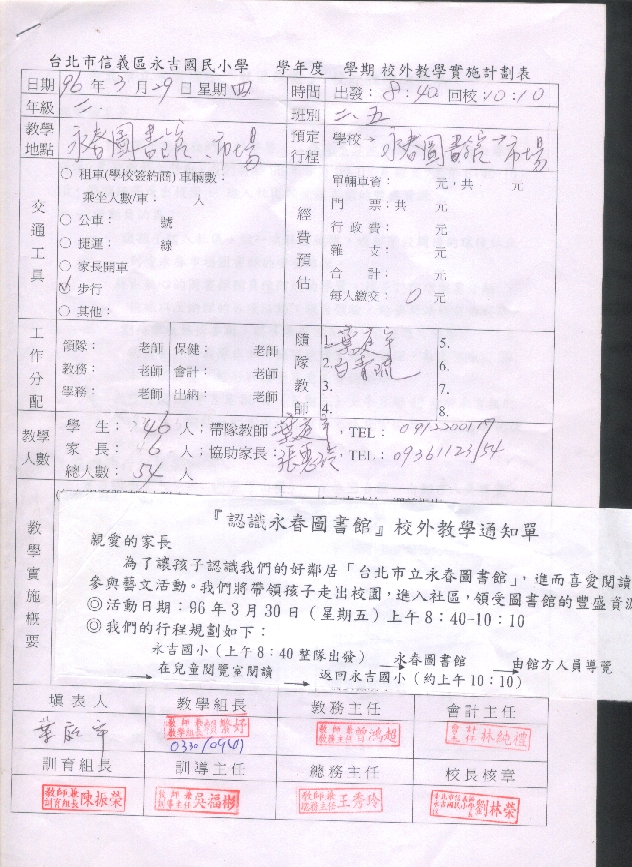 台北市信義區永吉國民小學　　學年度　　學期 校外教學實施計劃表
日期 96 年 3 月 29 日 星期 四 時間 出發：8：40 回校：10：10
年級 二. 班別 二.五
教學地點 永春圖書館、市場 預定行程 學校→永春圖書館→市場
交通工具
○ 租車(學校簽約商) 車輛數：
乘坐人數/車： 人
○ 公車： 號
○ 捷運： 線
○ 家長開車
○ 步行
○ 其他：
經費預估
單輛車資： 元，共： 元
門 票：共 元
行 政 費： 元
雜 支： 元
合 計： 元
每人繳交： 0 元
工作分配
領隊： 老師 保健： 老師
教務： 老師 會計： 老師
學務： 老師 出納： 老師
隨隊教師
1. 葉庭宇 5.
2. 6.
3. 7.
4. 8.
教學人數
學 生： 46 人；帶隊教師： 葉庭宇，TEL： 0912200117
家 長： 人；協助家長： 張惠 ，TEL： 0936112354
總人數： 54 人
教學實施概要
『認識永春圖書館』校外教學通知單
親愛的家長
為了讓孩子認識我們的好鄰居「台北市立永春圖書館」，進而喜愛閱讀
參與藝文活動。我們將帶領孩子走出校園，進入社區，領受圖書館的豐盛資源
◎活動日期：96 年 3 月 30 日（星期五）上午 8：40-10：10
◎我們的行程規劃如下：
永吉國小（上午 8：40 整隊出發） → 永春圖書館 → 由館方人員導覽
→ 在兒童閱覽室閱讀 → 返回永吉國小（約上午 10：10）
填表人 教學組長 教務主任 會計主任
葉庭宇 教師兼教學組長 賴 好 教師兼教務主任 曾鴻超 會計主任 林純禮
0330/0940
訓育組長 訓導主任 總務主任 校長核章
教師兼訓育組長 陳振榮 教師兼訓導主任 吳福彬 教師兼總務主任 王秀玲 台北市信義區永吉國民小學校長 劉林榮